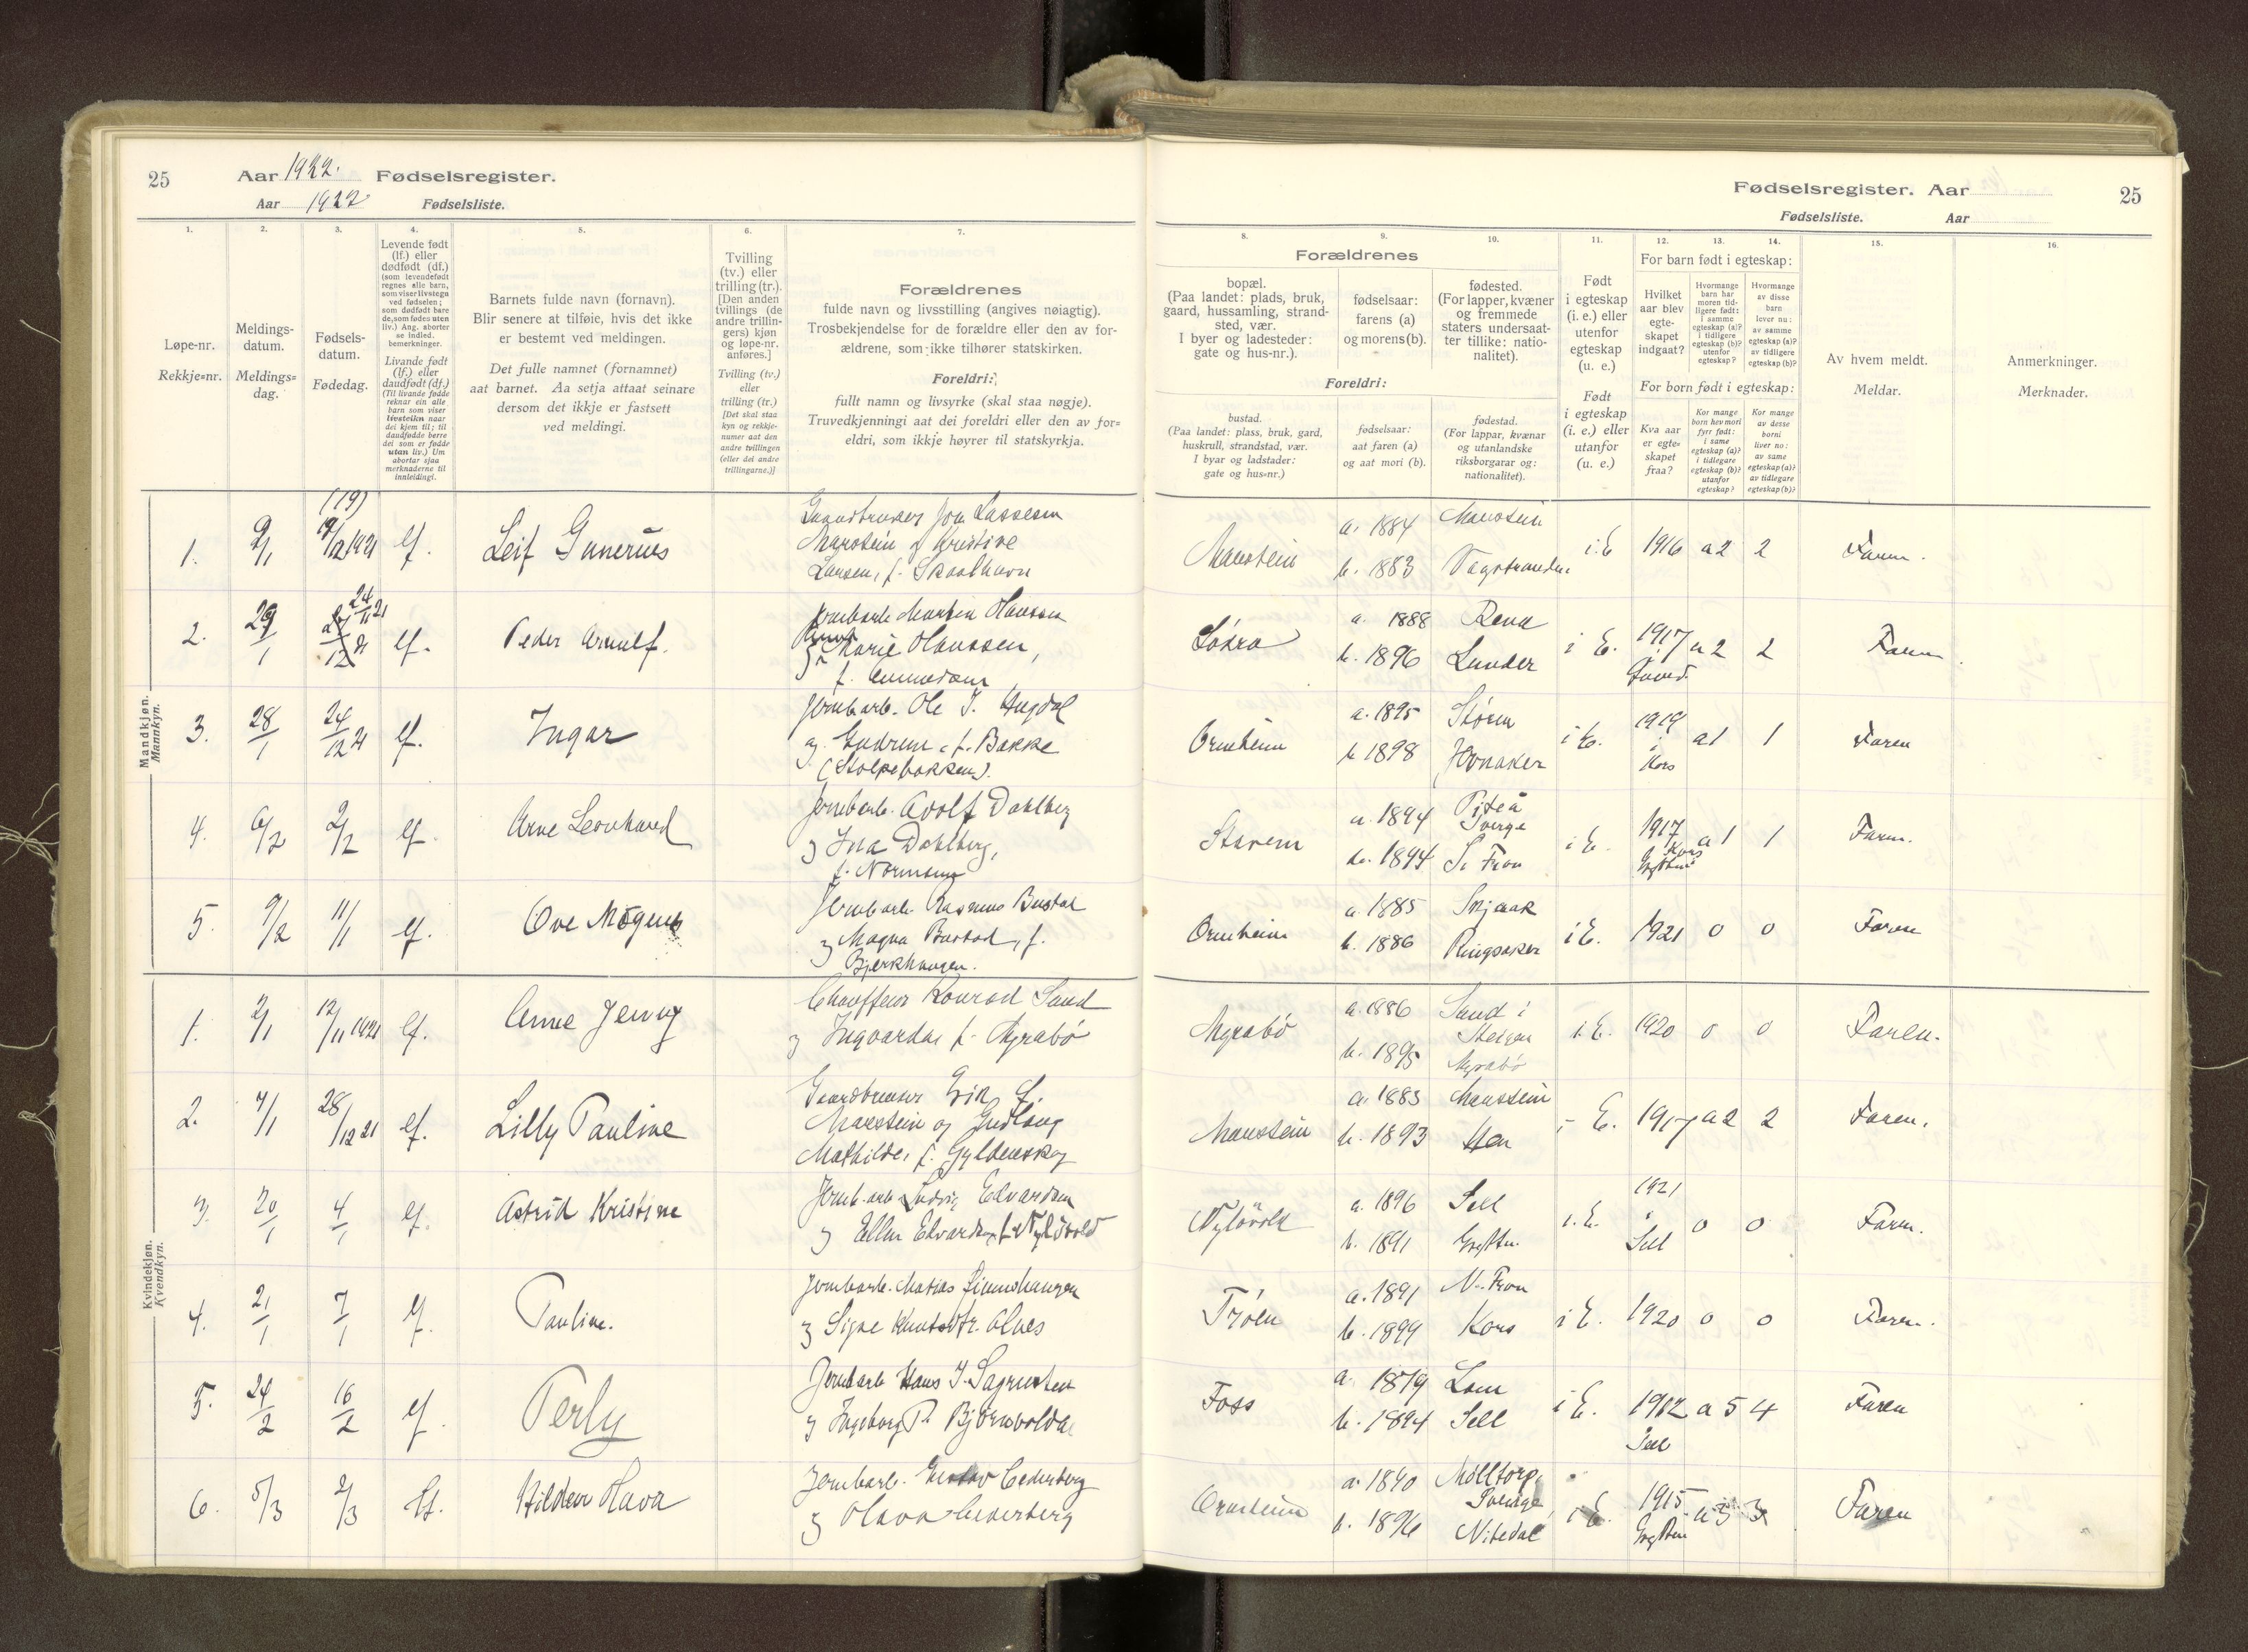 25
Aar 1922. Fødselsregister.
Aar 1922 Fødselsliste.
1.
2.
3.
4.
5.
6.
7.
Løpe-nr.
Rekkje=nr.
Meldings-
datum.
Meldings=
dag.
Fødsels-
datum.
Fødedag.
Levende født
(lf.) eller
dødfødt (df.)
(som levendefødt
regnes alle barn,
som viser livstegn
ved fødselen;
som dødfødt bare
de, som fødes uten
liv.) Ang. aborter
se indled.
bemerkninger.
Livande født
(lf.) eller
daudfødt (df.)
(Til livande fødde
reknar ein alle
barn som viser
livsteikn naar
dei kjem til; til
daudfødde berre
dei som er fødde
utan liv.) Um
abortar sjaa
merknaderne til
innleidingi.
Barnets fulde navn (fornavn).
Blir senere at tilføie, hvis det ikke
er bestemt ved meldingen.
Det fulle namnet (fornamnet)
aat barnet. Aa setja attaat seinare
dersom det ikkje er fastsett
ved meldingi.
Tvilling
(tv.) eller
trilling (tr.).
[Den anden
tvillings (de
andre trillin-
gers) kjøn
og løpe-nr.
anføres.]
Tvilling (tv.)
eller
trilling (tr.)
[Det skal staa
kyn og rekkje-
numer aat den
andre tvillingen
(eller dei andre
trillingarne.)]
Forældrenes
fulde navn og livsstilling (angives nøiagtig).
Trosbekjendelse for de forældre eller den av for-
ældrene, som ikke tilhører statskirken.
Foreldri:
fullt namn og livsyrke (skal staa nøgje).
Truvedkjenningi aat dei foreldri eller den av for=
eldri, som ikkje høyrer til statskyrkja.
Mandkjøn.
Mannkyn.
1. 2/1 (19) 19/12 1921 lf. Leif Gunerius
Gaardbruker Jon Lassesen
Marstein og Kristine
Larsen, f. Skaalhavn
2. 29/1 24/11 21 lf. Peder Arnulf.
Jernbarb. Martin Hanssen
og Marie Hanssen,
3. 28/1 24/12 21 lf. Ingar
Jernbarb. Ole J. Hugdal
og Gudrun, f. Bakke
(Stolpebakken).
4. 6/2 2/2 lf. Arne Leonhard
Jernbarb. Adolf Dahlberg
og Ina Dahlberg,
5. 9/2 11/1 lf. Ove Mogens
Jernbarb. Rasmus Bustad
og Magna Bustad, f.
Bjerkhaugen.
Kvindekjøn.
Kvendkyn.
1. 2/1 12/11 1921 lf. Anne Jenny
Chauffeur Konrad Sand
og Ingvarda, f. Myrabø
2. 4/1 28/12 21 lf. Lilly Pauline
Gaardbruker Erik L.
Marstein og Gudlaug
Mathilde, f. Gyldenskog
3. 20/1 4/1 lf. Astrid Kristine
Jernb. arb. Ludvig Edvardsen
og Ellen Edvardsen, f. Nyløvold
4. 21/1 7/1 lf. Pauline.
Jernbarb. Matias
og Signe Knutsdtr. Alnes
5. 24/2 16/2 lf. Perly
Jernbarb Hans J. Sagrusten
og Ingeborg P. Bjørnvolda
6. 5/3 2/3 lf. Hildur Hava
Jernbarb. Gustav Cederberg
og Olava Cederberg
Fødselsregister. Aar
25
Fødselsliste. Aar
8.
9.
10.
11.
12.
13.
14.
15.
16.
Forældrenes
bopæl.
(Paa landet: plads, bruk,
gaard, hussamling, strand-
sted, vær.
I byer og ladesteder:
gate og hus-nr.).
fødselsaar:
farens (a)
og morens (b).
fødested.
(For lapper, kvæner
og fremmede
staters undersaat-
ter tillike: natio-
nalitet).
Foreldri:
bustad.
(Paa landet: plass, bruk, gard,
huskrull, strandstad, vær.
I byar og ladstader:
gate og hus-nr.)
fødselsaar:
aat faren (a)
og aat mori (b).
fødestad.
(For lappar, kvænar
og utanlandske
riksborgarar og:
nationalitet).
Født
i egteskap
(i. e.) eller
utenfor
egteskap
(u. e.)
Født
i egteskap
(i. e.) eller
utanfor
(u. e.)
For barn født i egteskap:
Hvilket
aar blev
egte-
skapet
indgaat?
Hvormange
barn har
moren tid-
ligere født:
i samme
egteskap (a)?
i tidligere
egteskap (b)?
utenfor
egteskap?
Hvormange
av disse
barn
lever nu:
av samme
egteskap (a)?
av tidligere
egteskap (b)?
For born født i egteskap:
Kva aar
er egte-
skapet
fraa?
Kor mange
born hev mori
fyrr født:
i same
egteskap (a)?
i tidlegare
egteskap (b)?
utanfor
egteskap?
Kor mange
av desse
borni
liver no:
av same
egteskap (a)?
av tidlegare
egteskap (b)?
Av hvem meldt.
Meldar.
Anmerkninger.
Merknader.
Marstein a. 1884 Marstein i. E 1916 a 2 2 Faren.
b. 1883 Vågstranden
a. 1888 Rena i E. 1917 a 2 2 Faren.
b. 1896 Lunder
Ormheim a. 1895 Støren i E. 1919 a 1 1 Faren
b 1898 Jevnaker i Kors
Stavem a. 1894 Piteå Sverge i E. 1917 a 1 1 Faren.
b. 1894 S. Fron Kors Grytten
Ormheim a. 1885 Skjaak i E. 1921 0 0 Faren
b. 1886 Ringsaker
Myrabø a. 1886 Sand i Steigen i. E. 1920 0 0 Faren.
b. 1895 Myrabø
Marstein a. 1883 Marstein i E. 1917 a 2 2 Faren.
b. 1893 Hen
Nyløvold a. 1896 Sell i. E. 1921 i Sell 0 0 Faren.
b. 1891 Grytten.
Trøen a. 1891 N. Fron i E. 1920 0 0 Faren.
b. 1899 Kors
Foss a. 1879 Lom i E. 1912 a 5 4 Faren
b. 1894 Sell Sell
Ormheim a. 1890 Mølltorp, Sverige i E. 1915 a 3 3 Faren
b. 1896 Nitedal Grytten